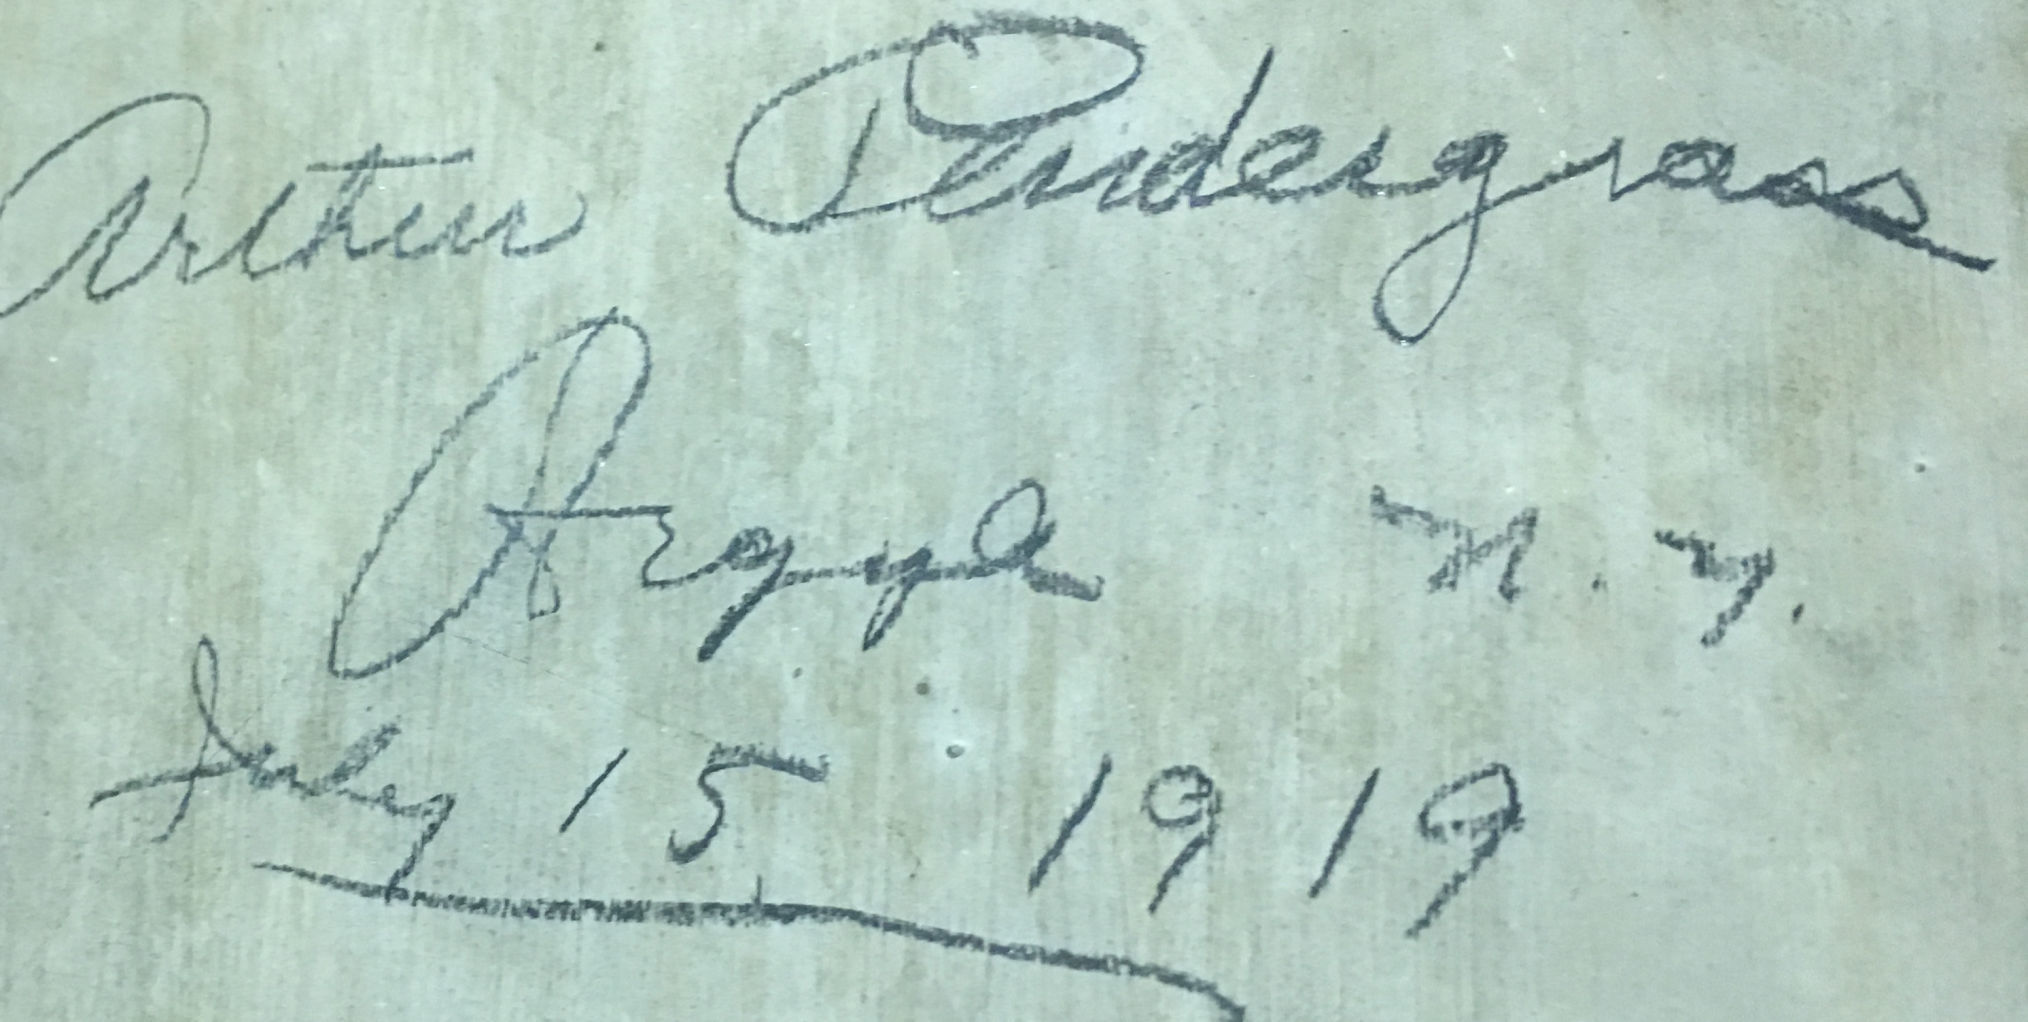 Arthur Pendergrass
Argyle N. Y.
July 15 1919